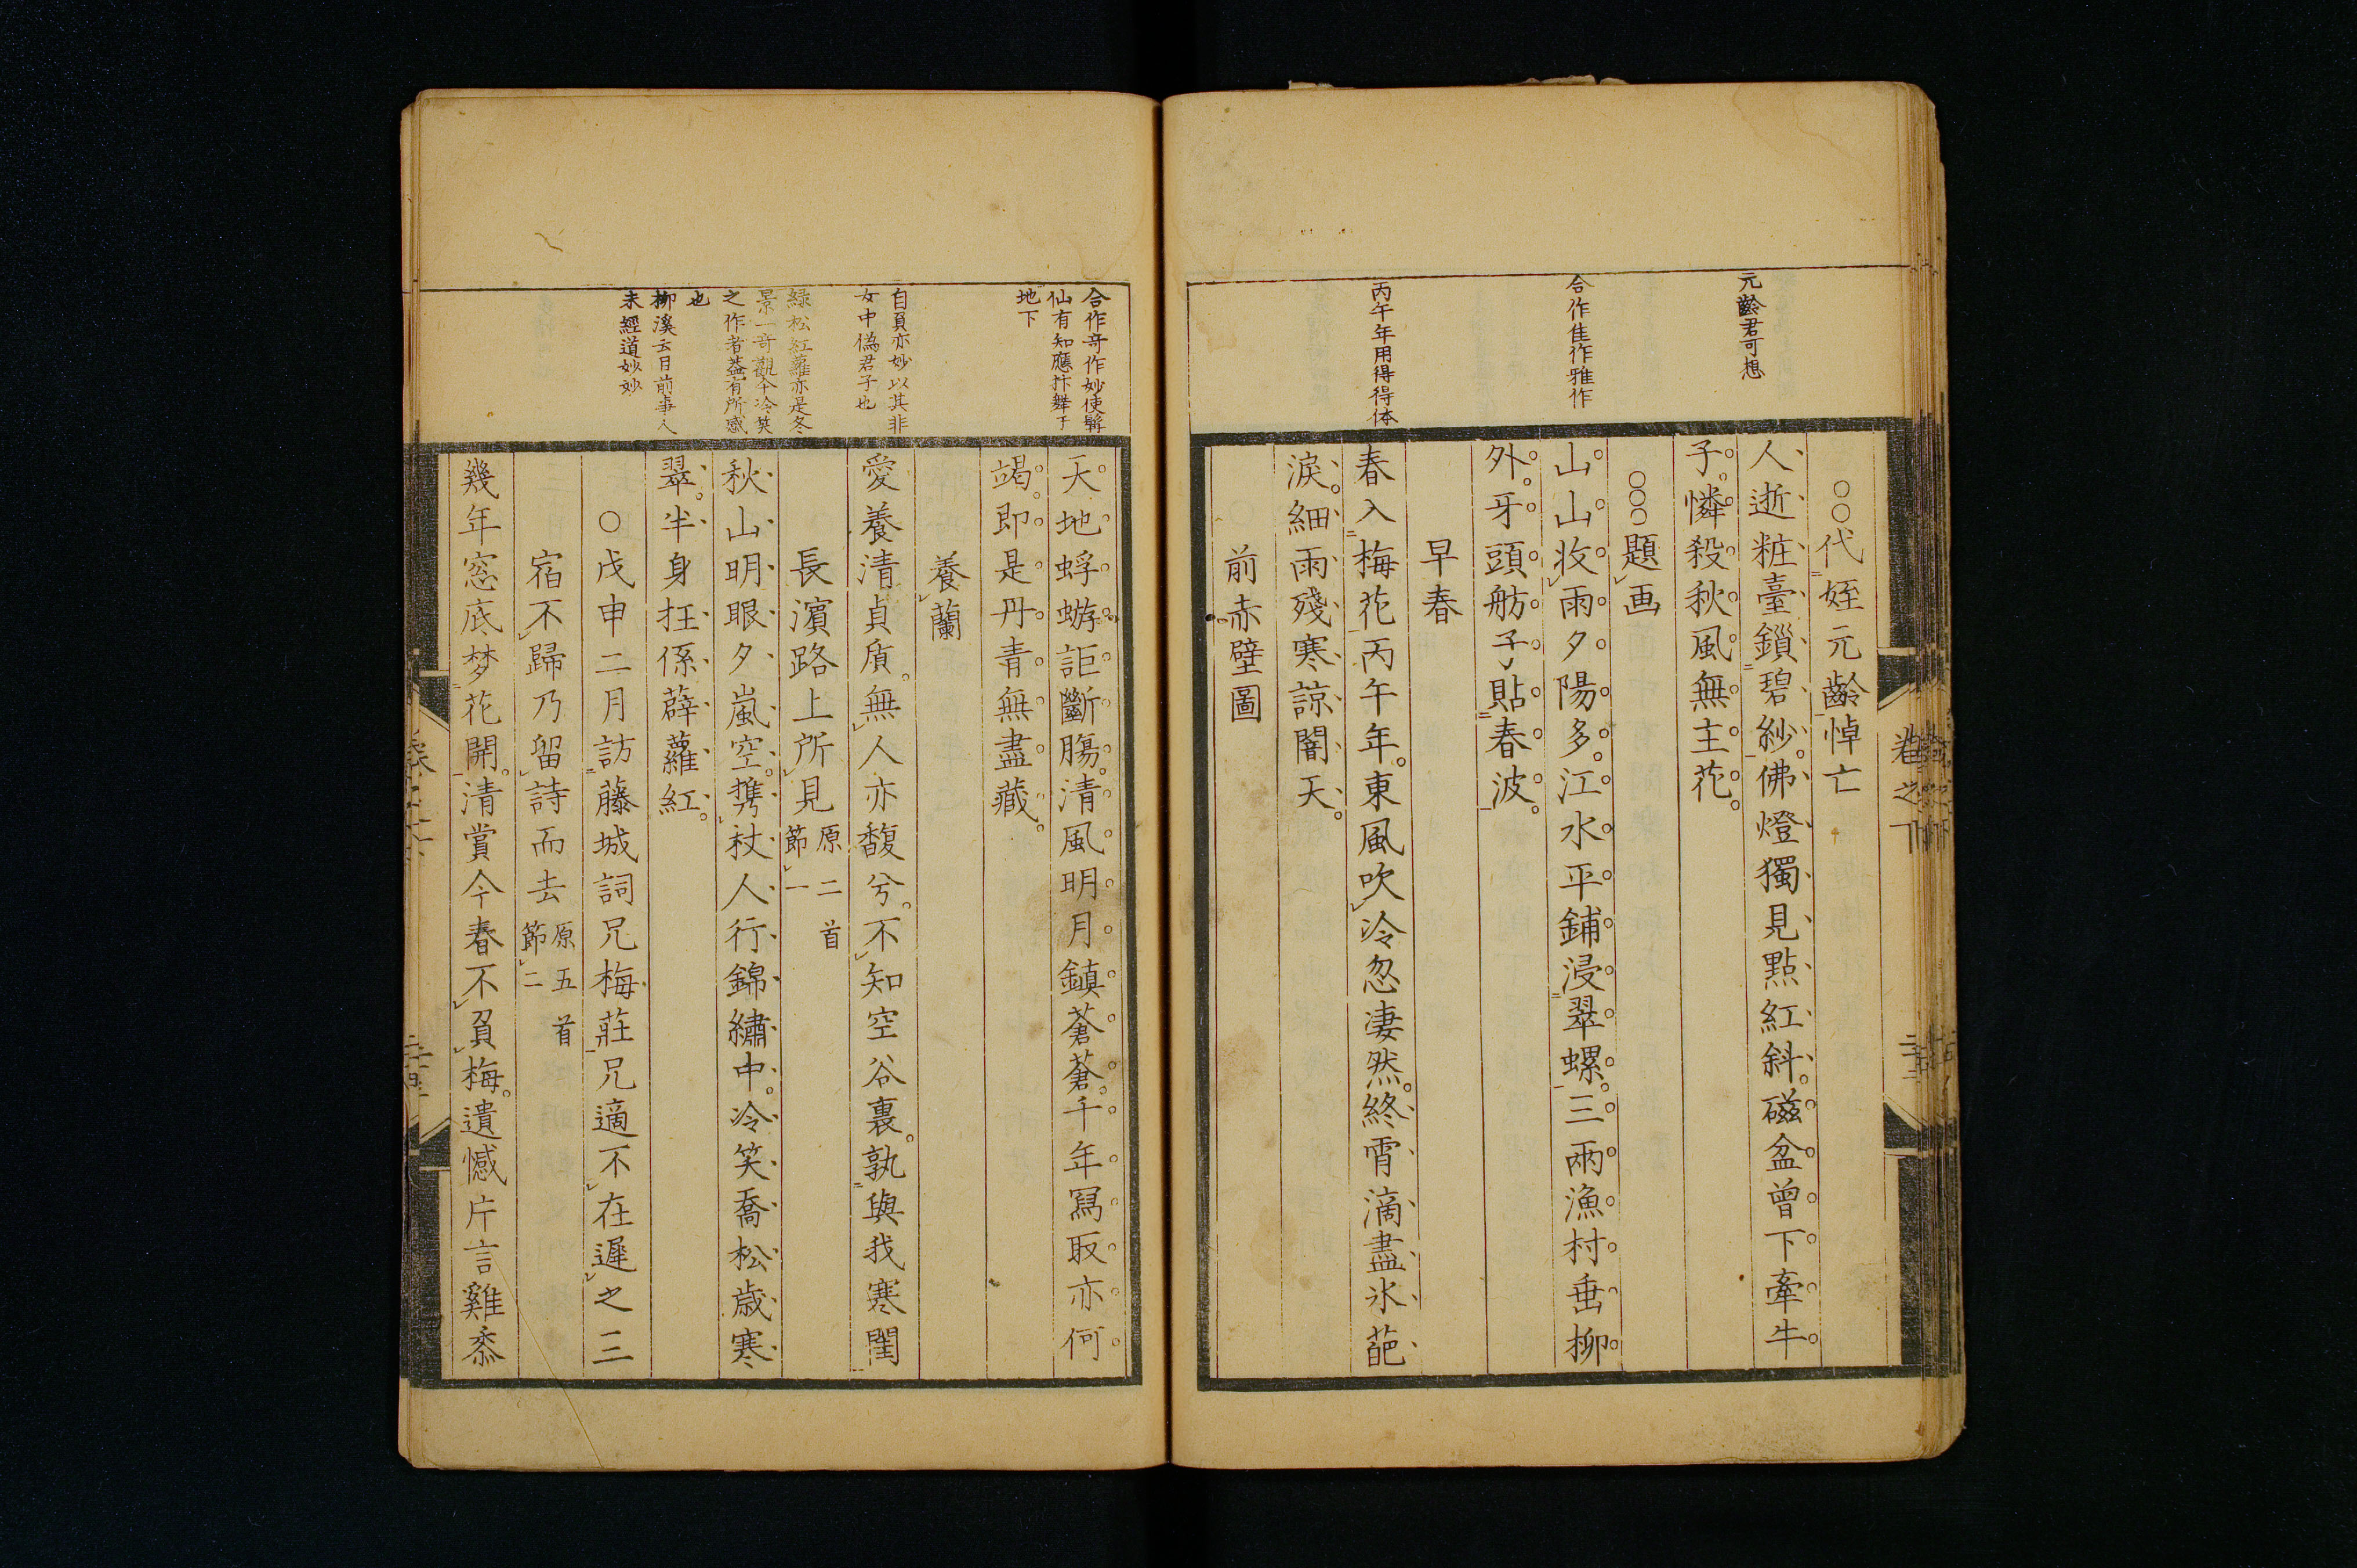 元齡君可想
合作佳作雅作
丙午年用得得体
○○代姪元齡悼亡
人逝粧臺鎖碧紗佛燈獨見點紅斜磁盆曾下牽牛
子憐殺秋風無主花
○○○題画
山山收雨夕陽多江水平鋪浸翠螺三兩漁村垂柳
外牙頭舫子貼春波
早春
春入梅花丙午年東風吹冷忽凄然終宵滴盡氷葩
淚細雨殘寒諒闇天
前赤壁圖
合作奇作妙使髯
仙有知應抃舞于
地下
自負亦妙以其非
女中偽君子也
綠松紅蘿亦是冬
景一奇觀今冷笑
之作者蓋有所感
也
柳溪云目前事人
未經道妙妙
天地蜉蝣詎斷膓清風明月鎮蒼蒼千年寫取亦何
竭即是丹青無盡藏
養蘭
愛養清貞質無人亦馥兮不知空谷裏孰與我寒閨
長濱路上所見原二首節一
秋山明眼夕嵐空携杖人行錦繡中冷笑喬松歲寒
翠半身抂係薜蘿紅
○戊申二月訪藤城詞兄梅莊兄適不在遲之三
宿不歸乃留詩而去原五首節二
幾年窓底梦花開清賞今春不負梅遺憾片言雞黍